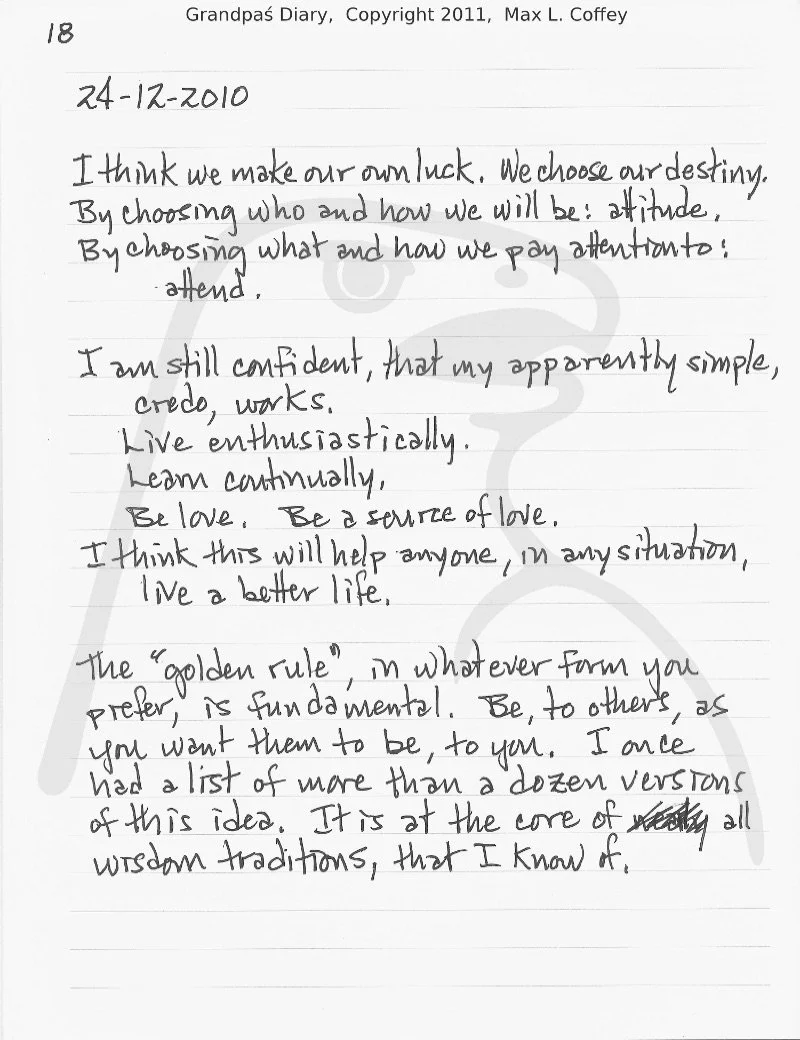 Grandpaś Diary, Copyright 2011, Max L. Coffey
18
24-12-2010
I think we make our own luck. We choose our destiny.
By choosing who and how we will be: attitude.
By choosing what and how we pay attention to:
attend.
I am still confident, that my apparently simple,
credo, works.
Live enthusiastically.
Learn continually.
Be love. Be a source of love.
I think this will help anyone, in any situation,
live a better life.
The "golden rule", in whatever form you
prefer, is fundamental. Be, to others, as
you want them to be, to you. I once
had a list of more than a dozen versions
of this idea. It is at the core of all
wisdom traditions, that I know of.